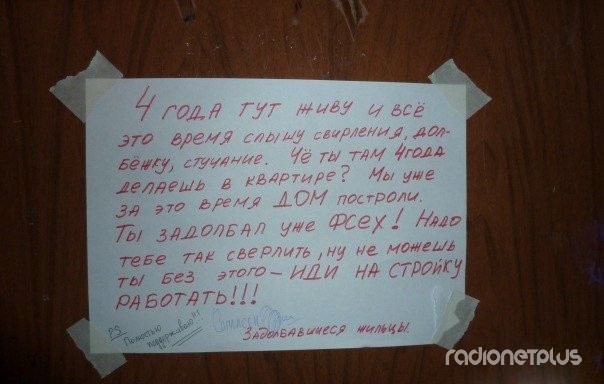 4 ГОДА ТУТ ЖИВУ И ВСЁ
ЭТО ВРЕМЯ СЛЫШУ СВИРЛЕНИЯ, ДОЛ-
БЁЖКУ, СТУЧАНИЕ. ЧЁ ТЫ ТАМ 4 ГОДА
ДЕЛАЕШЬ В КВАРТИРЕ? МЫ УЖЕ
ЗА ЭТО ВРЕМЯ ДОМ ПОСТРОЛИ.
ТЫ ЗАДОЛБАЛ УЖЕ ФСЕХ! НАДО
ТЕБЕ ТАК СВЕРЛИТЬ, НУ НЕ МОЖЕШЬ
ТЫ БЕЗ ЭТОГО – ИДИ НА СТРОЙКУ
РАБОТАТЬ!!!
PS
Полностью
поддерживаю!!!
ЗАДОЛБАВШИЕСЯ ЖИЛЬЦЫ.
radionetplus